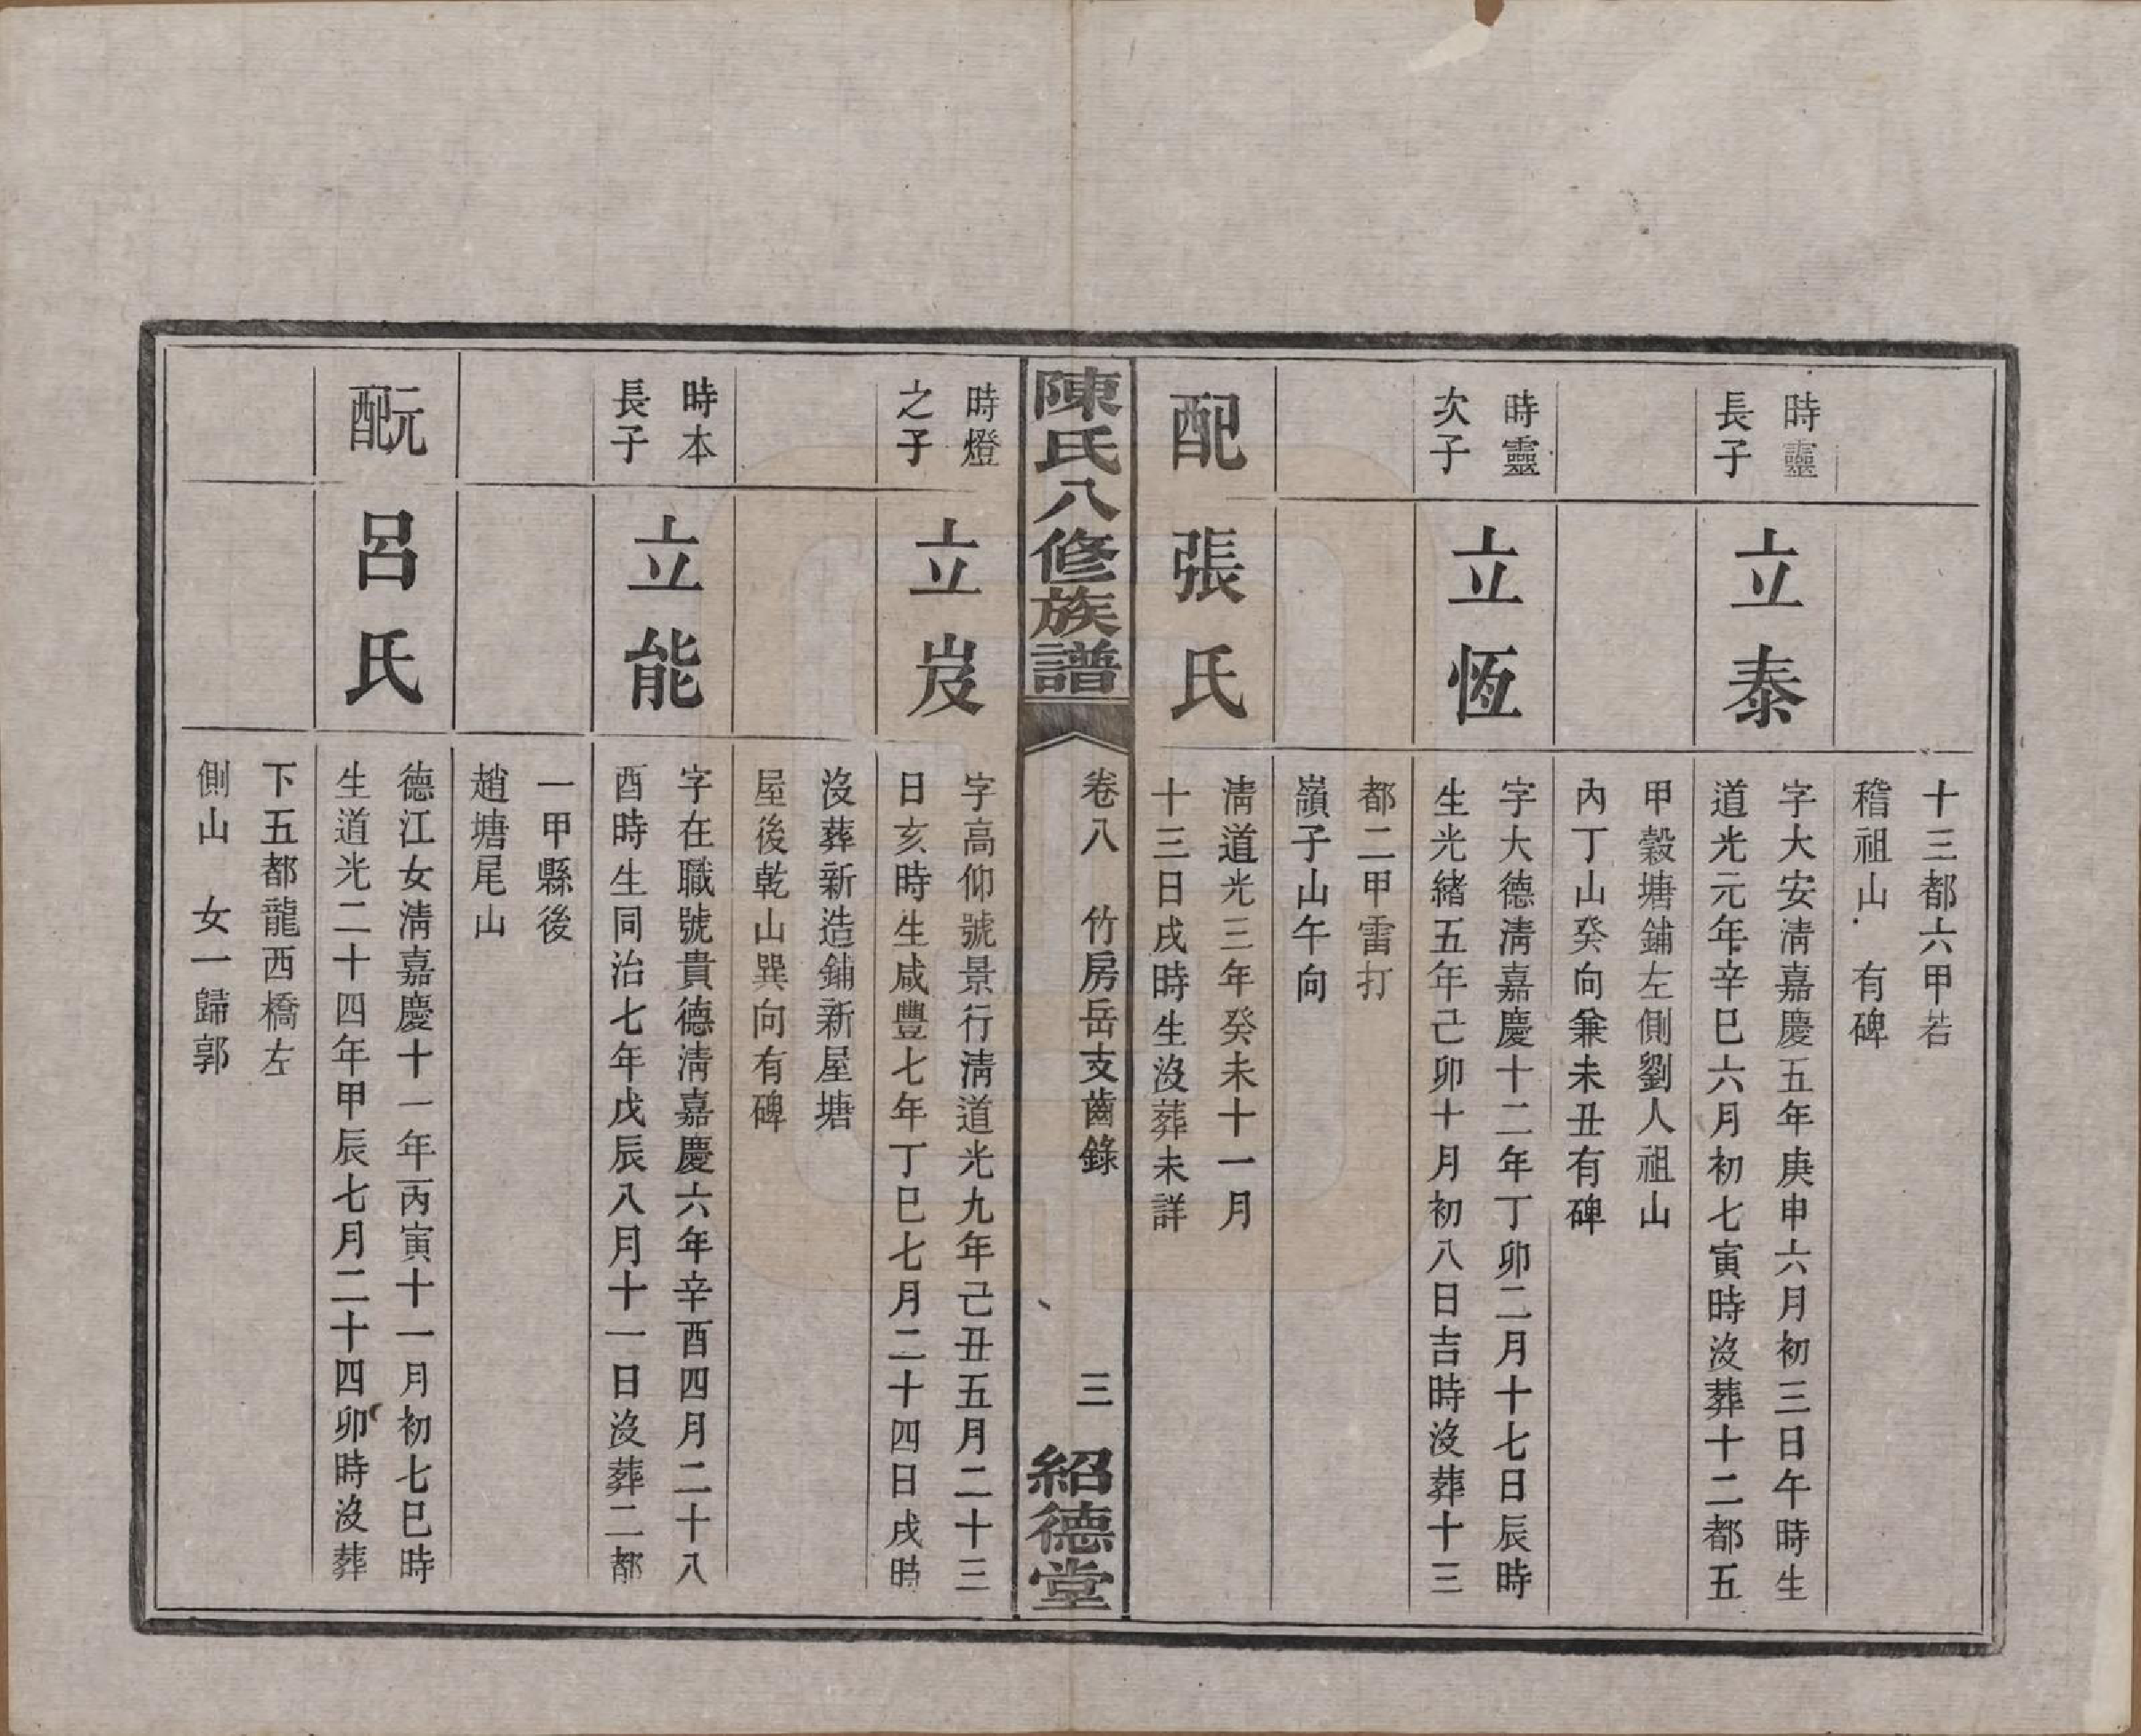 十三都六甲若
稽祖山 有碑
時靈
長子
立泰
字大安淸嘉慶五年庚申六月初三日午時生
道光元年辛巳六月初七寅時沒葬十二都五
甲穀塘鋪左側劉人祖山
內丁山癸向兼未丑有碑
時靈
次子
立恆
字大德淸嘉慶十二年丁卯二月十七日辰時
生光緖五年己卯十月初八日吉時沒葬十三
都二甲雷打
嶺子山午向
配
張氏
淸道光三年癸未十一月
十三日戌時生沒葬未詳
陳氏八修族譜
卷八 竹房岳支齒錄
三
紹德堂
時燈
之子
立岌
字高仰號景行淸道光九年己丑五月二十三
日亥時生咸豐七年丁巳七月二十四日戌時
沒葬新造鋪新屋塘
屋後乾山巽向有碑
時本
長子
立能
字在職號貴德淸嘉慶六年辛酉四月二十八
酉時生同治七年戊辰八月十一日沒葬二都
一甲縣後
趙塘尾山
元配
呂氏
德江女淸嘉慶十一年丙寅十一月初七巳時
生道光二十四年甲辰七月二十四卯時沒葬
下五都龍西橋左
側山 女一歸郭